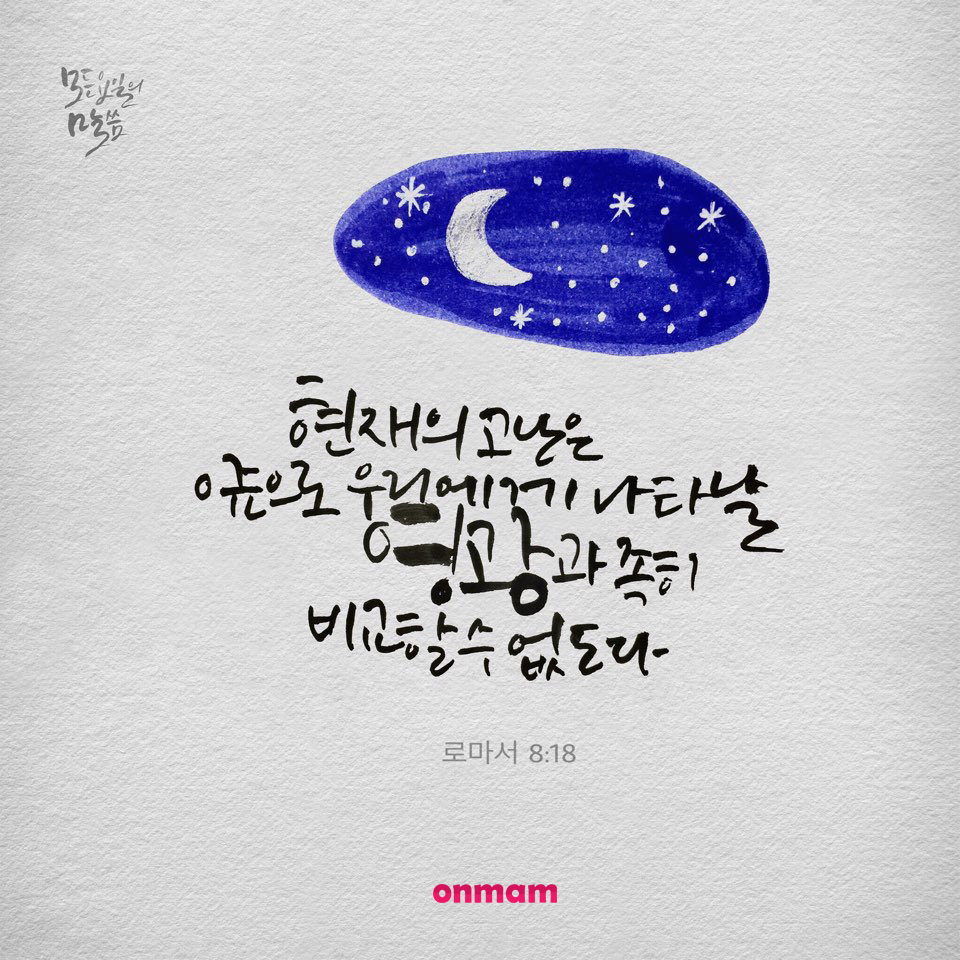 모든요일의
말씀
현재의 고난은
이준으로 우리에게 나타날
영광과 족히
비교할 수 없도다-
로마서 8:18
onmam